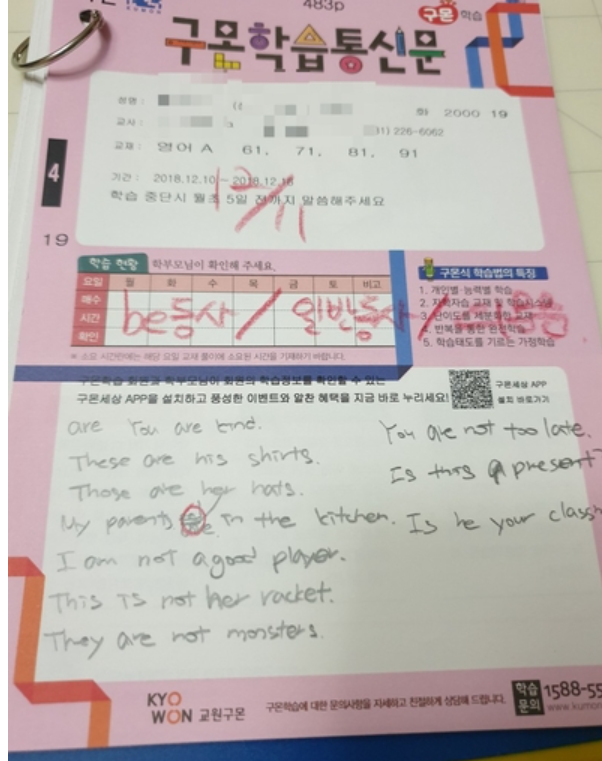 483p
구몬 학습
구몬학습통신문
성명 :
화 2000 19
교사 :
226-6062
교재 : 영어 A 61, 71, 81, 91
4
기간 : 2018.12.10 ~ 2018.12.16
12/11
학습 중단시 월초 5일 전까지 말씀해주세요
19
학습 현황 학부모님이 확인해 주세요.
요일 월 화 수 목 금 토 비고
매수
시간
확인
be동사 / 일반동사 /
※ 소요 시간란에는 해당 요일 교재 풀이에 소요된 시간을 기재하기 바랍니다.
구몬식 학습법의 특징
1. 개인별·능력별 학습
2. 자학자습 교재 및 학습시스템
3. 난이도를 세분화한 교재
4. 반복을 통한 완전학습
5. 학습태도를 기르는 가정학습
구몬학습 회원과 학부모님이 회원의 학습정보를 확인할 수 있는
구몬세상 APP을 설치하고 풍성한 이벤트와 알찬 혜택을 지금 바로 누리세요!
구몬세상 APP
설치 바로가기
are You are kind.
These are his shirts.
Those are her hats.
My parents are in the kitchen.
I am not a good player.
This is not her racket.
They are not monsters.
You are not too late.
Is this a present?
Is he your
KYOWON 교원구몬
구몬학습에 대한 문의사항을 자세하고 친절하게 상담해 드립니다.
학습문의 1588-55
www.kumon